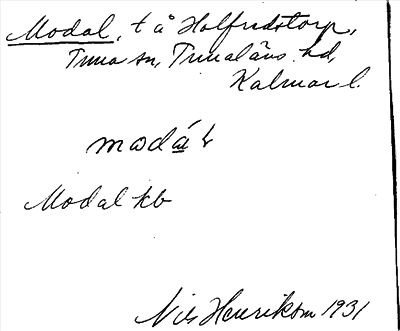 Modal, t å Holfredstorp,
Tuna sn, Tunaläns hd,
Kalmar l.
modạ̊l
Modal kb
Nils Henrikson 1931